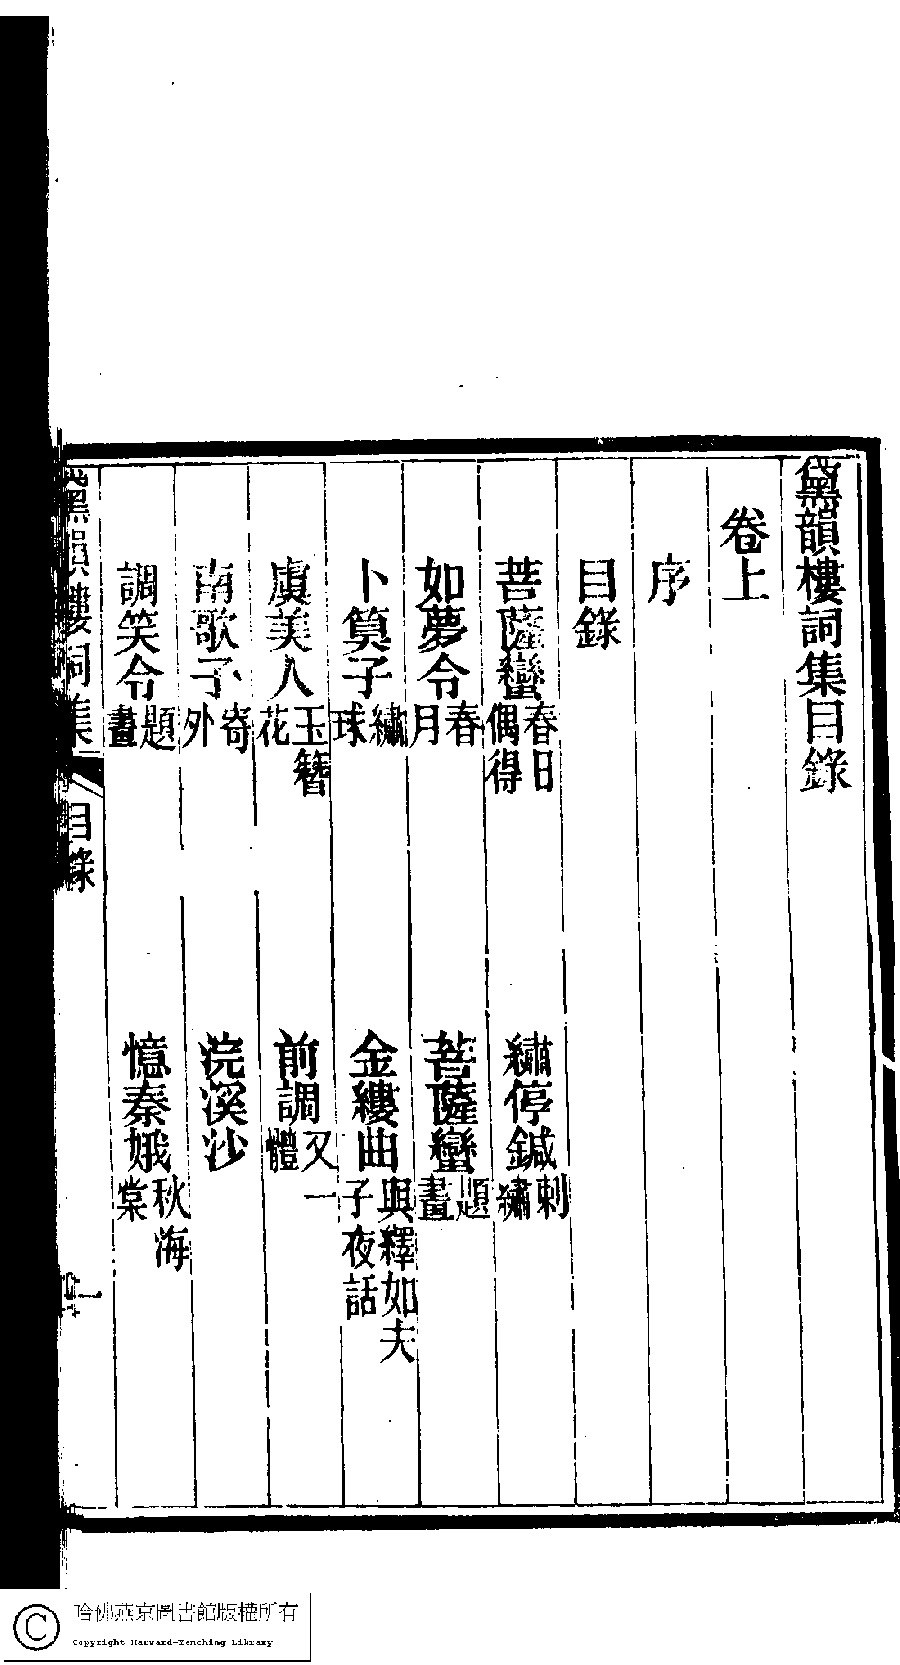 黛韻樓詞集目錄
卷上
序
目錄
菩薩蠻春日偶得 繡停鍼刺繡
如夢令春月 菩薩蠻題畫
卜算子繡球 金縷曲與釋如夫子夜話
虞美人玉簪花 前調又一體
南歌子寄外 浣溪沙
調笑令題畫 憶秦娥秋海棠
黛韻樓詞集 目錄 一
哈佛燕京圖書館版權所有
Copyright Harvard-Yenching Library